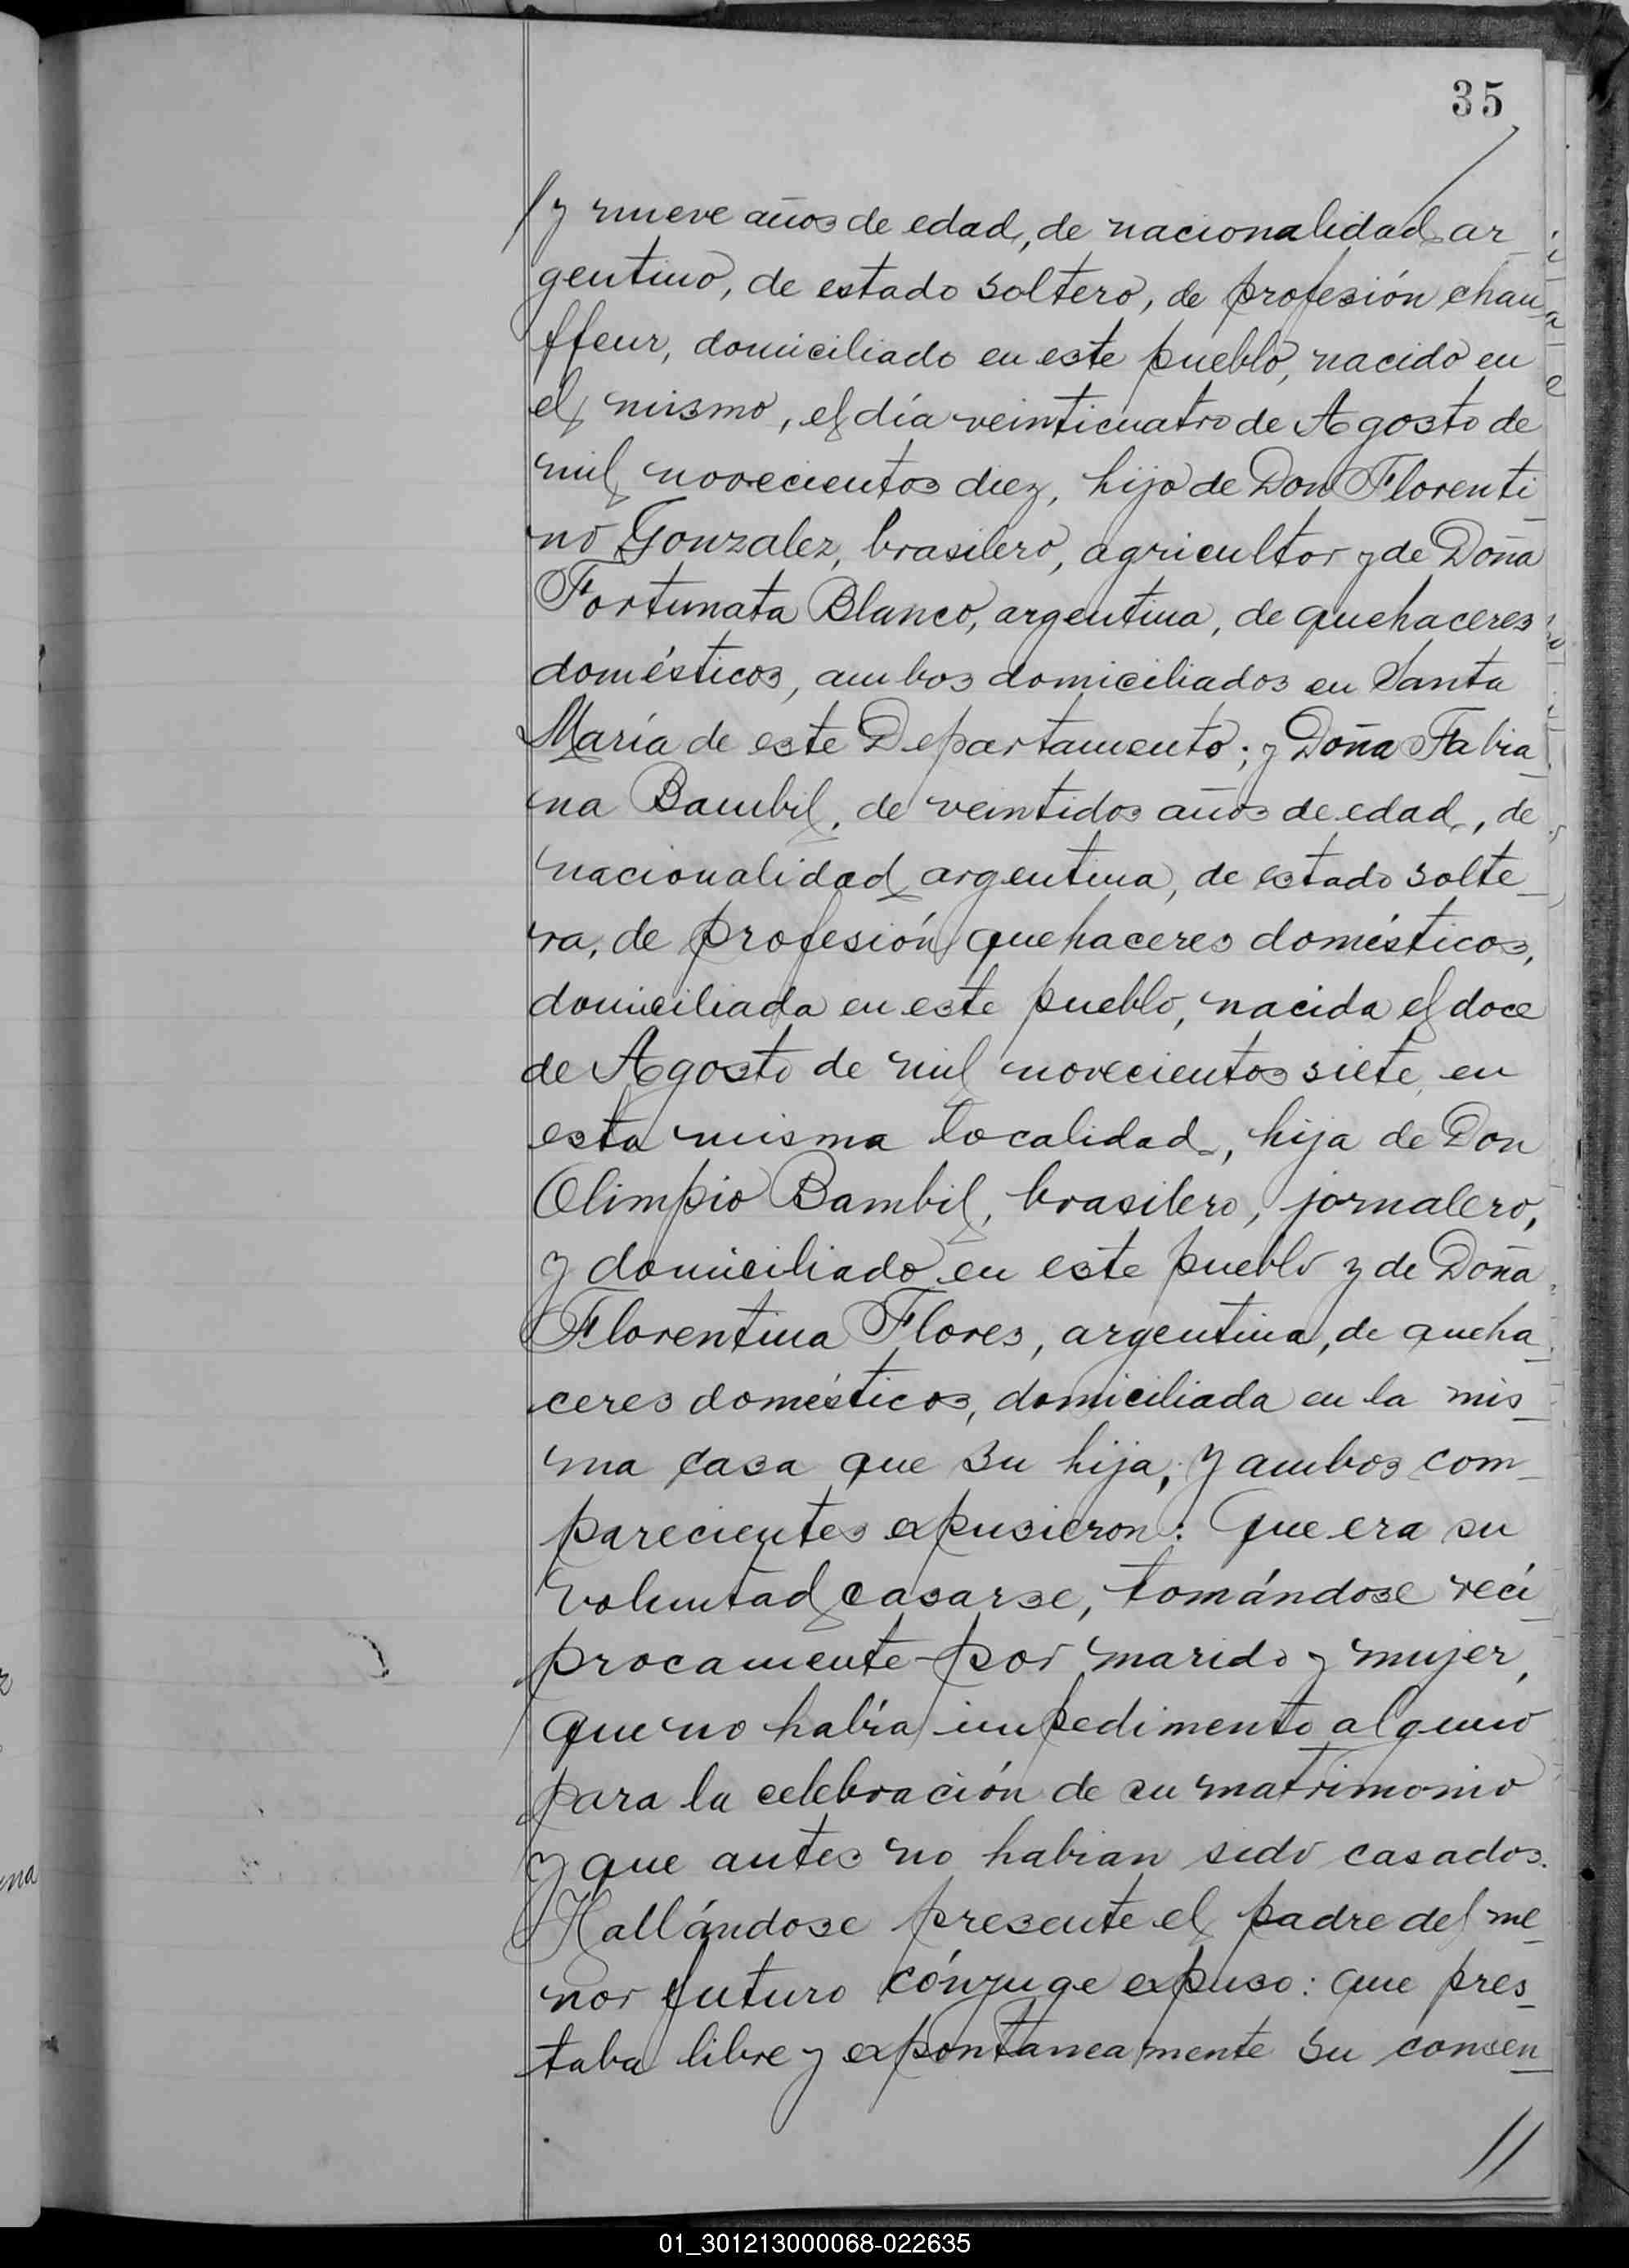 35
/y nueve años de edad, de nacionalidad ar_
gentino, de estado soltero, de profesión chau_
ffeur, domiciliado en este pueblo, nacido en
el mismo, el día veinticuatro de Agosto de
mil novecientos diez, hijo de Don Florenti_
no Gonzalez, brasilero, agricultor y de Doña
Fortunata Blanco, argentina, de quehaceres
domésticos, ambos domiciliados en Santa
María de este Departamento; y Doña Fabia_
na Bambil, de veintidos años de edad, de
nacionalidad argentina, de estado solte_
ra, de profesión quehaceres domésticos,
domiciliada en este pueblo, nacida el doce
de Agosto de mil novecientos siete, en
esta misma localidad, hija de Don
Olimpio Bambil, brasilero, jornalero,
y domiciliado en este pueblo y de Doña
Florentina Flores, argentina, de queha_
ceres domésticos, domiciliada en la mis_
ma casa que su hija; y ambos com_
parecientes expusieron: Que era su
voluntad casarse, tomándose recí_
procamente por marido y mujer,
que no había impedimento alguno
para la celebración de su matrimonio
y que antes no habian sido casados.
Hallándose presente el padre del me_
nor futuro cónyuge expuso: que pres_
taba libre y expontaneamente su consen_
//
01_301213000068-022635